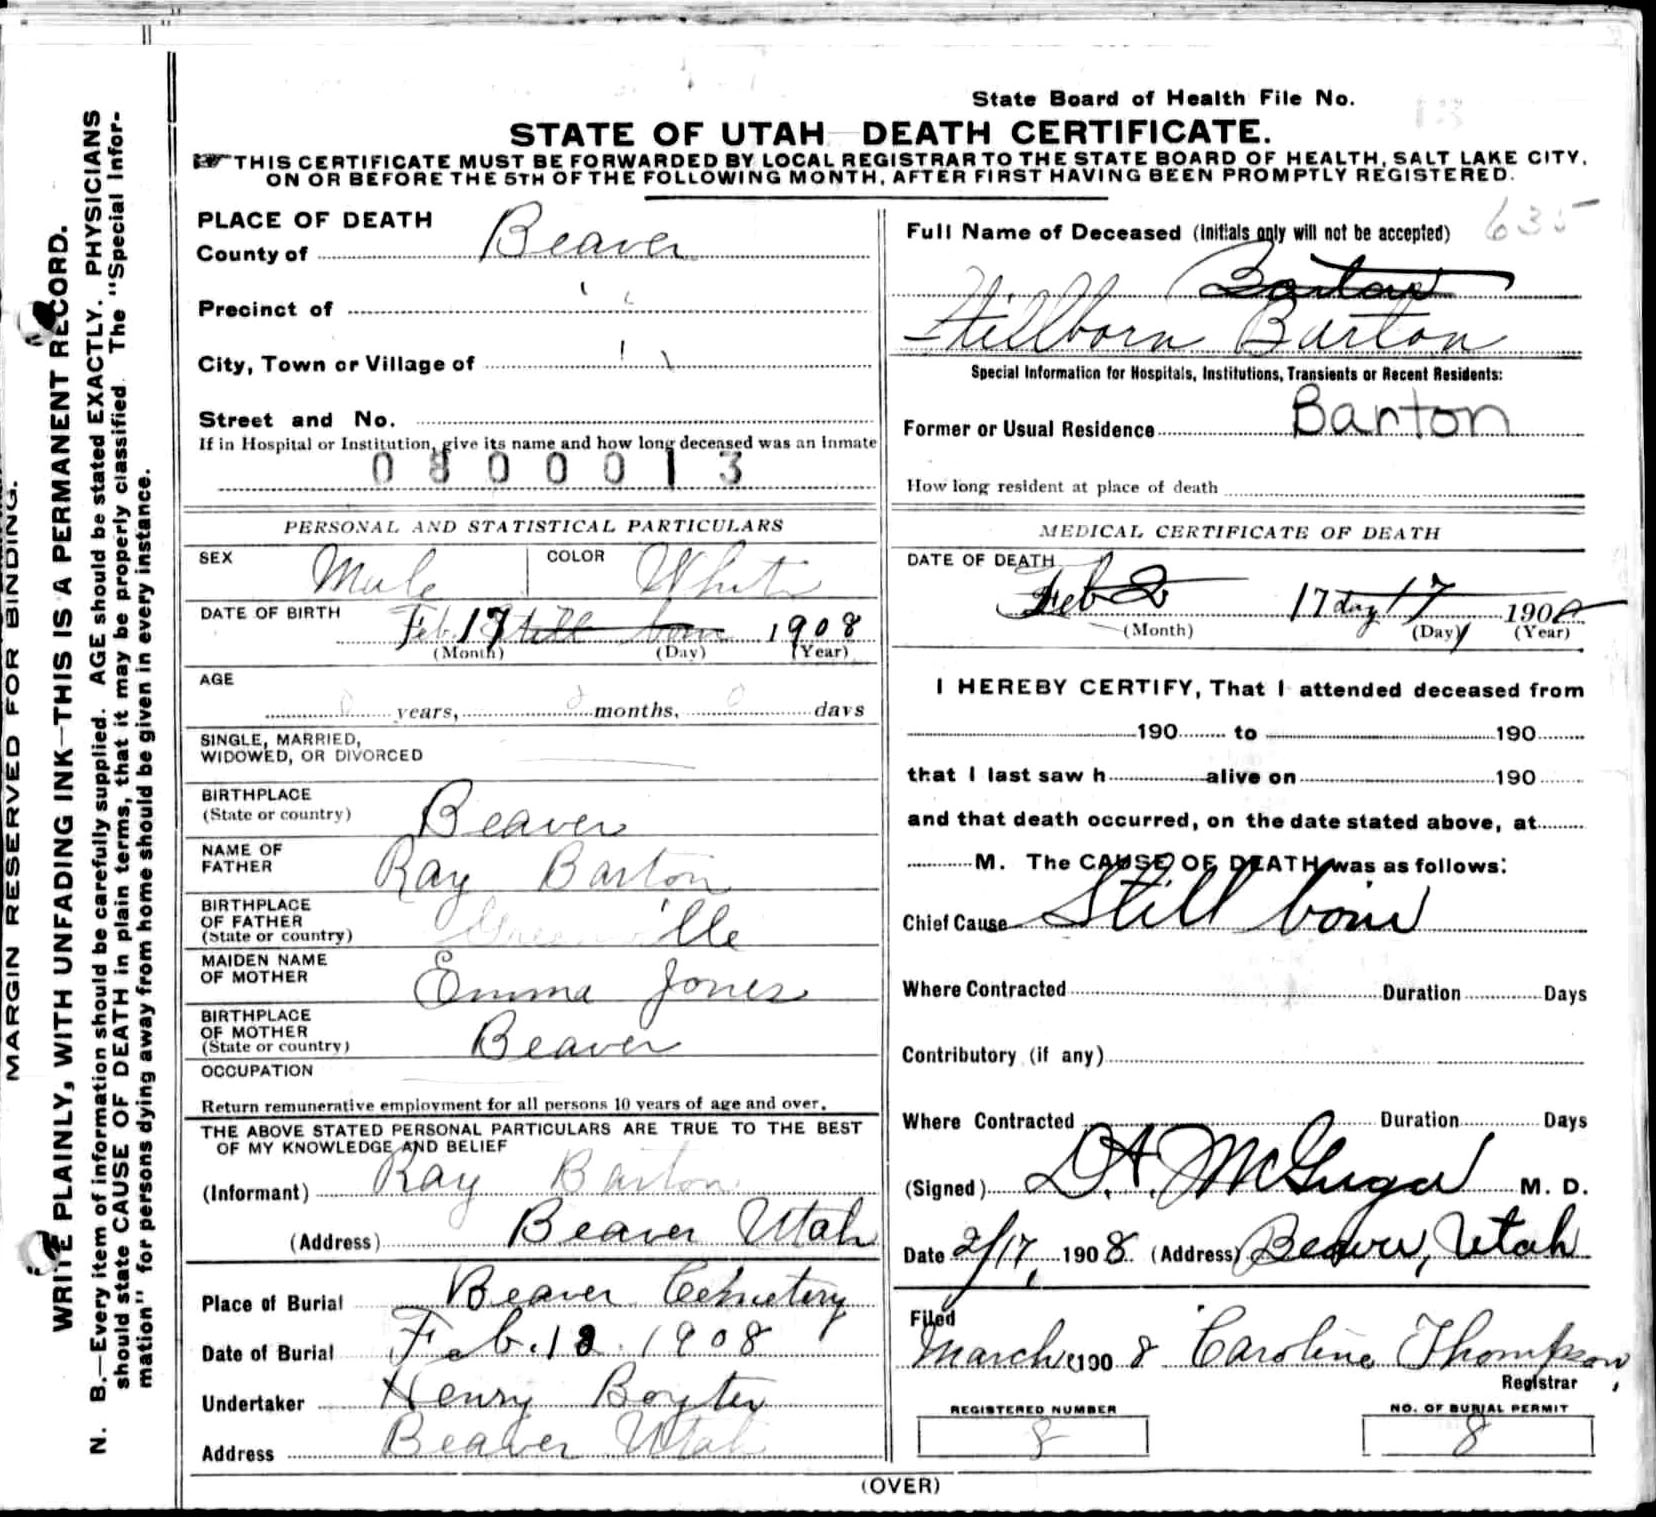 MARGIN RESERVED FOR BINDING.
WRITE PLAINLY, WITH UNFADING INK—THIS IS A PERMANENT RECORD.
N. B.—Every item of information should be carefully supplied. AGE should be stated EXACTLY. PHYSICIANS
should state CAUSE OF DEATH in plain terms, that it may be properly classified. The "Special Infor-
mation" for persons dying away from home should be given in every instance.
State Board of Health File No. 13
STATE OF UTAH—DEATH CERTIFICATE.
THIS CERTIFICATE MUST BE FORWARDED BY LOCAL REGISTRAR TO THE STATE BOARD OF HEALTH, SALT LAKE CITY,
ON OR BEFORE THE 5TH OF THE FOLLOWING MONTH, AFTER FIRST HAVING BEEN PROMPTLY REGISTERED.
PLACE OF DEATH
County of Beaver
Precinct of "
City, Town or Village of "
Street and No.
If in Hospital or Institution, give its name and how long deceased was an inmate
0800013
PERSONAL AND STATISTICAL PARTICULARS
SEX Male COLOR White
DATE OF BIRTH Feb. 17 Still born 1908
(Month) (Day) (Year)
AGE
0 years, 0 months, 0 days
SINGLE, MARRIED,
WIDOWED, OR DIVORCED
BIRTHPLACE
(State or country) Beaver
NAME OF
FATHER Ray Barton
BIRTHPLACE
OF FATHER
(State or country) Greenville
MAIDEN NAME
OF MOTHER Emma Jones
BIRTHPLACE
OF MOTHER
(State or country) Beaver
OCCUPATION
Return remunerative employment for all persons 10 years of age and over.
THE ABOVE STATED PERSONAL PARTICULARS ARE TRUE TO THE BEST
OF MY KNOWLEDGE AND BELIEF
(Informant) Ray Barton
(Address) Beaver Utah
Place of Burial Beaver Cemetery
Date of Burial Feb. 18 1908
Undertaker Henry Boyter
Address Beaver Utah
Full Name of Deceased (Initials only will not be accepted) 635
Barton
Stillborn Barton
Special Information for Hospitals, Institutions, Transients or Recent Residents:
Former or Usual Residence Barton
How long resident at place of death
MEDICAL CERTIFICATE OF DEATH
DATE OF DEATH
Feb 2 17 day 17 1908
(Month) (Day) (Year)
I HEREBY CERTIFY, That I attended deceased from
190 to 190
that I last saw h alive on 190
and that death occurred, on the date stated above, at
M. The CAUSE OF DEATH was as follows:
Chief Cause Still born
Where Contracted Duration Days
Contributory (if any)
Where Contracted Duration Days
(Signed) D.A. McGregor M. D.
Date 2/17, 1908 (Address) Beaver, Utah
Filed
March 1908 Caroline Thompson,
Registrar
REGISTERED NUMBER
8
NO. OF BURIAL PERMIT
8
(OVER)